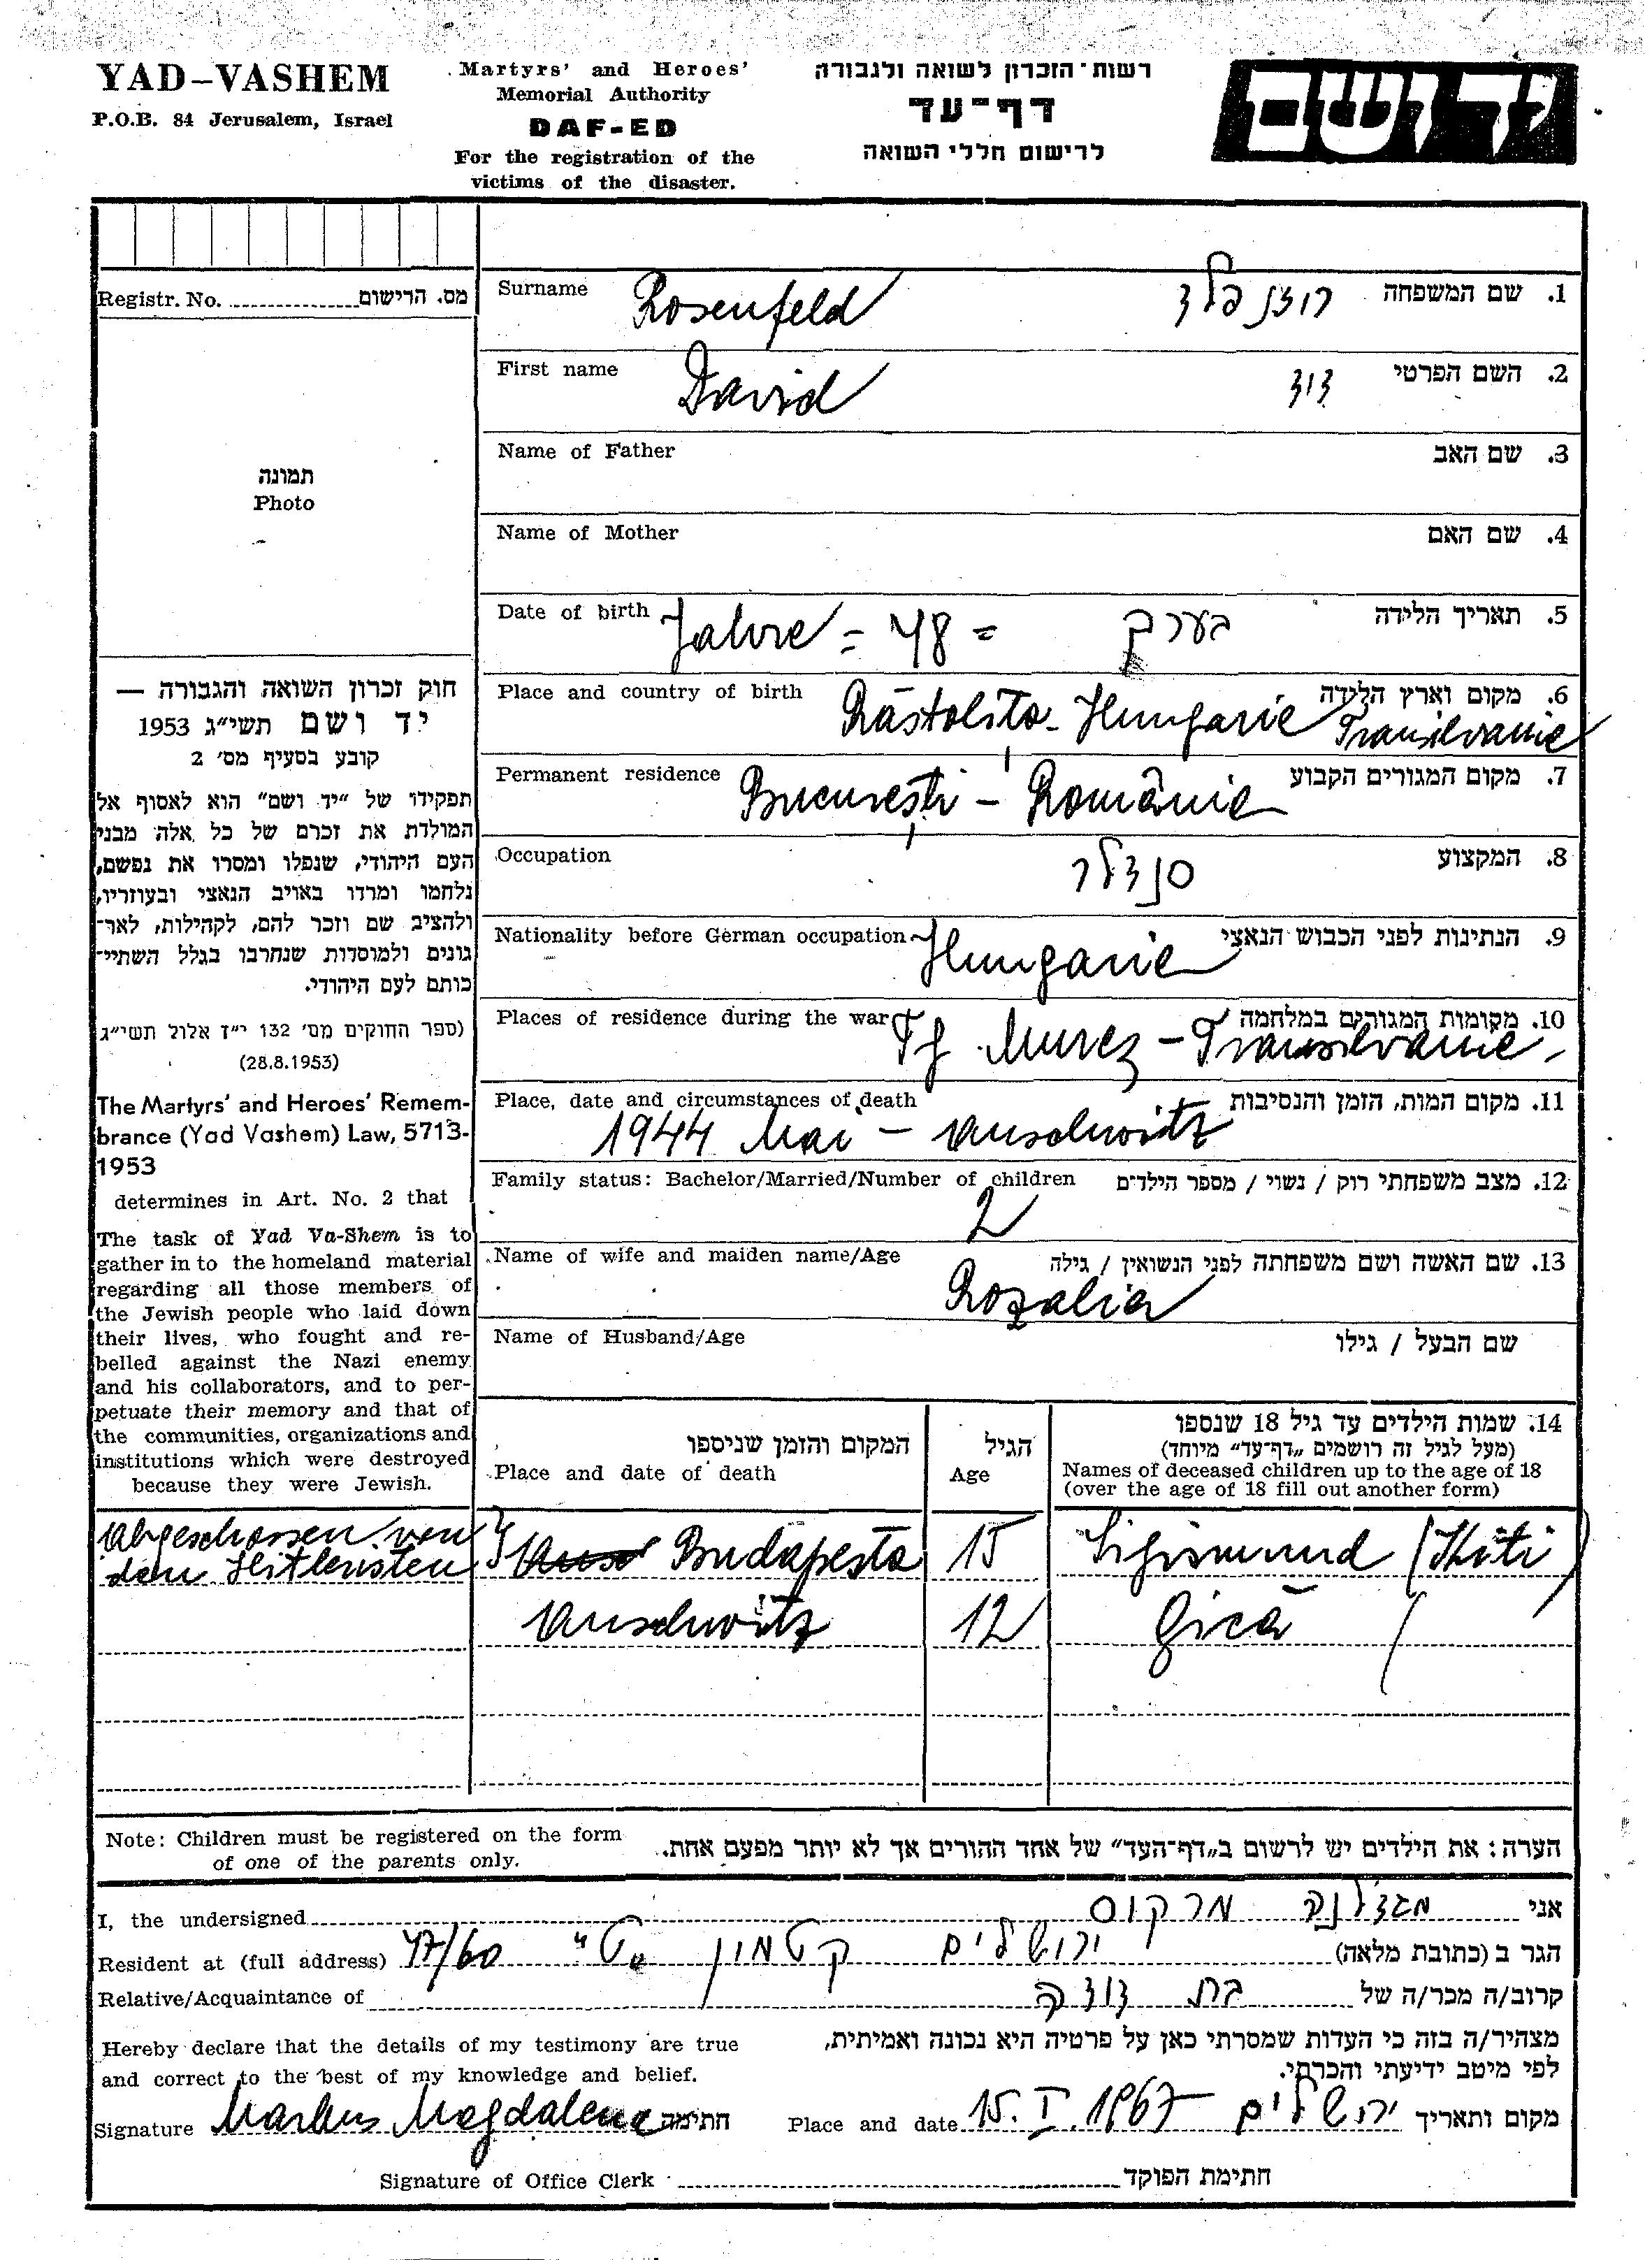 YAD-VASHEM
P.O.B. 84 Jerusalem, Israel
Martyrs' and Heroes'
Memorial Authority
DAF-ED
For the registration of the
victims of the disaster.
רשות־הזכרון לשואה ולגבורה
דף־עד
לרישום חללי השואה
יד ושם
Registr. No. מס. הרישום
תמונה
Photo
Surname Rosenfeld רוזנפלד 1. שם המשפחה
First name David דוד 2. השם הפרטי
Name of Father 3. שם האב
Name of Mother 4. שם האם
Date of birth Jahre = 48 = בערך 5. תאריך הלידה
Place and country of birth Răstolița - Hungarie Transilvanie 6. מקום וארץ הלידה
Permanent residence București - Românie 7. מקום המגורים הקבוע
Occupation סנדלר 8. המקצוע
Nationality before German occupation Hungarie 9. הנתינות לפני הכבוש הנאצי
Places of residence during the war Tg Mureș - Transilvanie 10. מקומות המגורים במלחמה
Place, date and circumstances of death 1944 Mai - Auschwitz 11. מקום המות, הזמן והנסיבות
Family status: Bachelor/Married/Number of children 2 12. מצב משפחתי רוק / נשוי / מספר הילדים
Name of wife and maiden name/Age Rozalia 13. שם האשה ושם משפחתה לפני הנשואין / גילה
Name of Husband/Age שם הבעל / גילו
חוק זכרון השואה והגבורה —
יד ושם תשי״ג 1953
קובע בסעיף מס׳ 2
תפקידו של ״יד ושם״ הוא לאסוף אל
המולדת את זכרם של כל אלה מבני
העם היהודי, שנפלו ומסרו את נפשם,
נלחמו ומרדו באויב הנאצי ובעוזריו,
ולהציב שם וזכר להם, לקהילות, לאר־
גונים ולמוסדות שנחרבו בגלל השתיי־
כותם לעם היהודי.
(ספר החוקים מס׳ 132 י״ז אלול תשי״ג
(28.8.1953)
The Martyrs' and Heroes' Remem-
brance (Yad Vashem) Law, 5713-
1953
determines in Art. No. 2 that
The task of Yad Va-Shem is to
gather in to the homeland material
regarding all those members of
the Jewish people who laid down
their lives, who fought and re-
belled against the Nazi enemy
and his collaborators, and to per-
petuate their memory and that of
the communities, organizations and
institutions which were destroyed
because they were Jewish.
המקום והזמן שניספו
Place and date of death
הגיל
Age
14. שמות הילדים עד גיל 18 שנספו
(מעל לגיל זה רושמים ״דף־עד״ מיוחד)
Names of deceased children up to the age of 18
(over the age of 18 fill out another form)
abgeschossen von
den Hitleristen
Budapesta 15 Sigismund
Auschwitz 12 Gică
Note: Children must be registered on the form
of one of the parents only.
הערה: את הילדים יש לרשום ב״דף־העד״ של אחד ההורים אך לא יותר מפעם אחת.
I, the undersigned מגדלנה מרקוס אני
Resident at (full address) ירושלים קטמון "ט" 47/60 הגר ב (כתובת מלאה)
Relative/Acquaintance of בת דודה קרוב/ה מכר/ה של
Hereby declare that the details of my testimony are true
and correct to the best of my knowledge and belief.
מצהיר/ה בזה כי העדות שמסרתי כאן על פרטיה היא נכונה ואמיתית,
לפי מיטב ידיעתי והכרתי.
Signature Markus Magdalena חתימה Place and date 15.I.1967 ירושלים מקום ותאריך
Signature of Office Clerk חתימת הפוקד